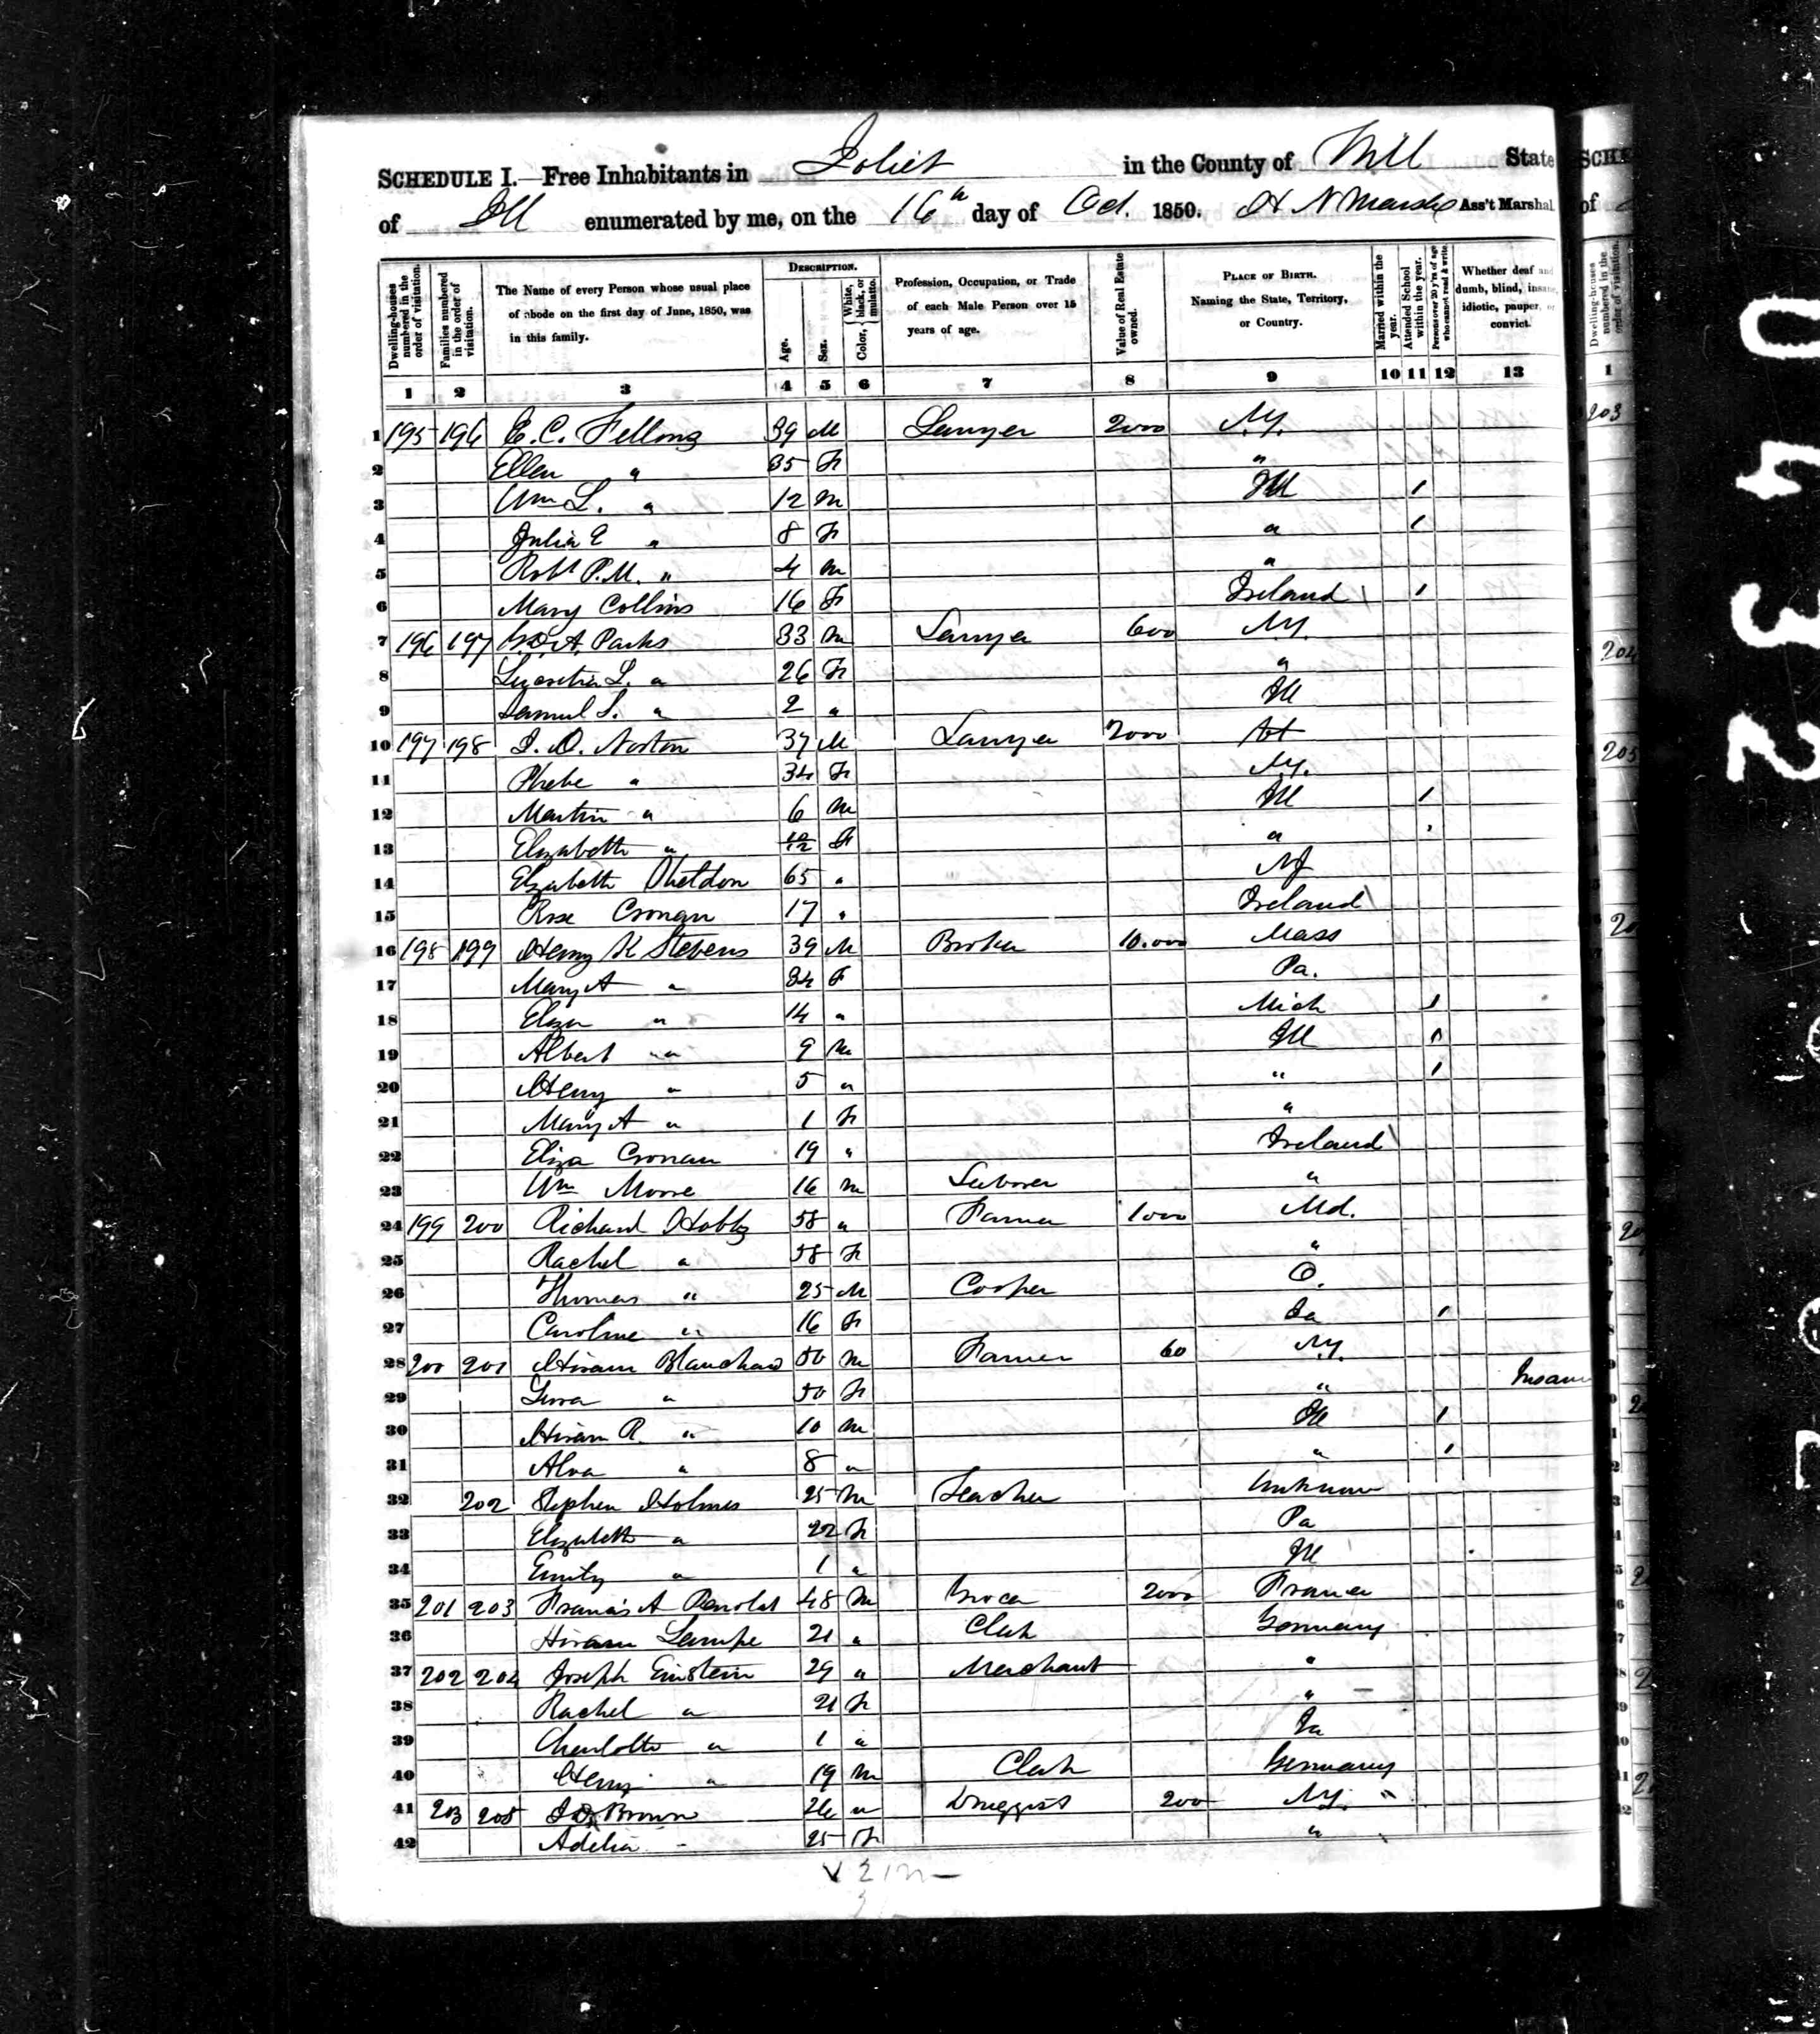 SCHEDULE I.—Free Inhabitants in Joliet in the County of Will State
of Ill enumerated by me, on the 16th day of Oct. 1850. H N Marsh Ass't Marshal
Dwelling-houses numbered in the order of visitation.
Families numbered in the order of visitation.
The Name of every Person whose usual place of abode on the first day of June, 1850, was in this family.
DESCRIPTION.
Age.
Sex.
Color, { White, black, or mulatto.
Profession, Occupation, or Trade of each Male Person over 15 years of age.
Value of Real Estate owned.
PLACE OF BIRTH. Naming the State, Territory, or Country.
Married within the year.
Attended School within the year.
Persons over 20 y'rs of age who cannot read & write.
Whether deaf and dumb, blind, insane, idiotic, pauper, or convict.
1 2 3 4 5 6 7 8 9 10 11 12 13
1 195 196 E. C. Fellows 39 M Lawyer 2000 N.Y.
2 Ellen " 35 F "
3 Wm L. " 12 M Ill /
4 Julia E " 8 F " /
5 Robt P.M. " 4 M "
6 Mary Collins 16 F Ireland /
7 196 197 G.D.A. Parks 33 M Lawyer 600 N.Y.
8 Lucretia L. " 26 F "
9 Samuel S. " 2 " Ill
10 197 198 J. O. Norton 37 M Lawyer 2000 Vt
11 Phebe " 34 F N.Y.
12 Martin " 6 M Ill /
13 Elizabeth " 10/12 F " '
14 Elizabeth Sheldon 65 " NJ
15 Rose Cronan 17 " Ireland
16 198 199 Henry K Stevens 39 M Broker 10.000 Mass
17 Mary A " 34 F Pa.
18 Eliza " 14 " Mich /
19 Albert " 9 M Ill /
20 Henry " 5 " " /
21 Mary A " 1 F "
22 Eliza Cronan 19 " Ireland
23 Wm Moore 16 M Laborer "
24 199 200 Richard Hobbs 58 " Farmer 1000 Md.
25 Rachel " 58 F "
26 Thomas " 25 M Cooper O.
27 Caroline " 16 F Ia /
28 200 201 Hiram Blanchard 50 M Farmer 60 N.Y.
29 " 50 F " Insane
30 Hiram R. " 10 M Ill /
31 Alva " 8 " " /
32 202 Stephen Holmes 25 M Teacher Unknown
33 Elizabeth " 22 F Pa
34 Emily " 1 " Ill
35 201 203 Francis A 48 M Grocer 2000 France
36 Hiram Lampe 21 " Clerk Germany
37 202 204 Joseph Einstein 29 " Merchant "
38 Rachel " 21 F "
39 Charlotte " 1 " Ia
40 Henry " 19 M Clerk Germany
41 203 205 Brown 26 " Druggist 200 N.Y.
42 Adelia 25 F "
SCHE
of
Dwelling-houses numbered in the order of visitation.
1
203
204
205
0432